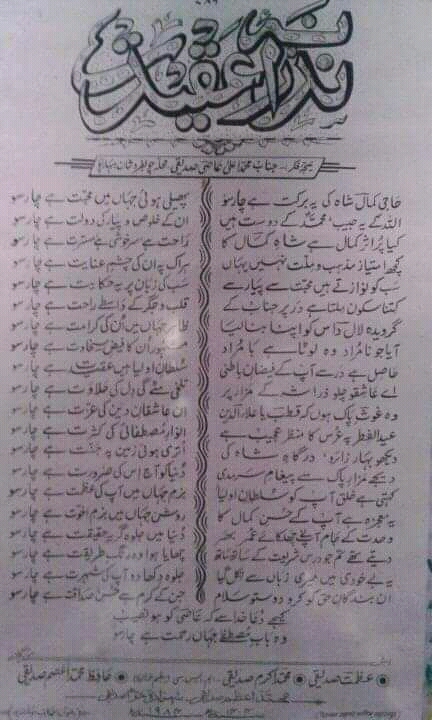 ۷۸۶
نذرانۂ عقیدت
نتیجۂ فکر:۔ جناب محمد اعلیٰ عاصی صدیقی محلہ
حاجی کمال شاہ کی یہ برکت ہے چار سو
پھیلی ہوئی جہاں میں محبت ہے چار سو
اللہ کے یہ حبیب محمدؐ کے دوست ہیں
ان کے خلوص و پیار کی دولت ہے چار سو
کیا پر اثر کمال ہے شاہِ کمال کا
راحت ہے سرخوشی ہے مسرت ہے چار سو
کچھ امتیاز مذہب و ملت نہیں یہاں
ہر اک پہ ان کی چشمِ عنایت ہے چار سو
سب کو نوازتے ہیں محبت سے پیار سے
سب کی زباں پر یہ حکایت ہے چار سو
کتنا سکون ملتا ہے در پر جناب کے
قلب و جگر کے واسطے راحت ہے چار سو
گرویدہ لال داس کو اپنا بنا لیا
ظاہر جہاں میں اُن کی کرامت ہے چار سو
آیا جو نامراد وہ لوٹا ہے بامراد
مشہور اُن کا فیضِ سخاوت ہے چار سو
حاصل ہے در سے آپ کے فیضانِ باطنی
سلطانِ اولیا سے عقیدت ہے چار سو
اے عاشقو چلو ذرا ان کے مزار پر
تلخی مٹے گی دل کی حلاوت ہے چار سو
وہ غوثِ پاک ہوں کہ قطب یا علاء الدین
ان عاشقانِ دین کی عزت ہے چار سو
عید الفطر پہ عرس کا منظر عجیب ہے
انوارِ مصطفائی کی کثرت ہے چار سو
دیکھو بہار زائرو درگاہِ شاہ کی
اُتری ہوئی زمین پہ جنت ہے چار سو
دیجے مزارِ پاک سے پیغامِ سرمدی
دنیا کو آج اس کی ضرورت ہے چار سو
کہتی ہے خلق آپ کو سلطانِ اولیا
بزمِ جہاں میں آپ کی عظمت ہے چار سو
یہ معجزہ ہے آپ کے حسنِ کمال کا
روشن جہاں میں بزمِ اخوت ہے چار سو
وحدت کے جام آپ نے چھلکائے عمر بھر
دنیا میں جلوہ گر یہ حقیقت ہے چار سو
دیتے تھے تم جو درس شریعت کے ساتھ ساتھ
چھایا ہوا وہ رنگِ طریقت ہے چار سو
یہ بے خودی میں میری زباں سے نکل گیا
جلوہ دکھا دو آپ کی شہرت ہے چار سو
ان بندگانِ حق کو کرو دوستو سلام
جن کے کرم سے حسنِ صداقت ہے چار سو
کیجے دعا خدا سے کہ عاصی کو ہو نصیب
وہ بابِ مصطفےٰ جہاں رحمت ہے چار سو
عظمت صدیقی ● محمد اکرم صدیقی ● حافظ محمد اعصم صدیقی